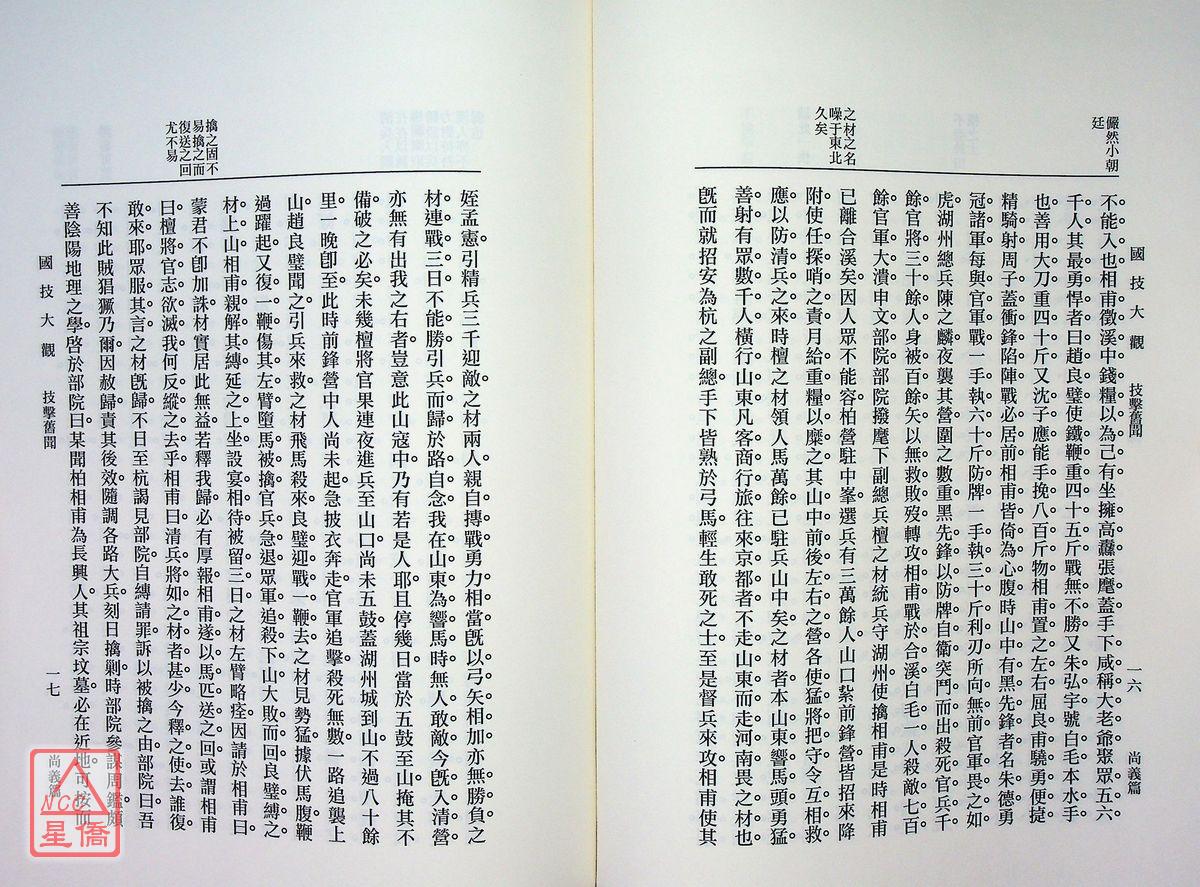 儼然小朝
廷
之材之名
噪于東北
久矣
國技大觀 技擊舊聞 一六 尚義篇
不能入也相甫徵溪中錢糧以為己有坐擁高纛張麾蓋手下咸稱大老爺聚眾五六
千人其最勇悍者曰趙良璧使鐵鞭重四十五斤戰無不勝又朱弘宇號白毛本水手
也善用大刀重四十斤又沈子應能手挽八百斤物相甫置之左右屈良甫驍勇便捷
精騎射周子蓋衝鋒陷陣戰必居前相甫皆倚為心腹時山中有黑先鋒者名朱德勇
冠諸軍每與官軍戰一手執六十斤防牌一手執三十斤利刃所向無前官軍畏之如
虎湖州總兵陳之麟夜襲其營圍之數重黑先鋒以防牌自衛突鬥而出殺死官兵千
餘官將三十餘人身被百餘矢以無救敗歿轉攻相甫戰於合溪白毛一人殺敵七百
餘官軍大潰申文部院部院撥麾下副總兵檀之材統兵守湖州使擒相甫是時相甫
已離合溪矣因人眾不能容柏營駐中峯選兵有三萬餘人山口紮前鋒營皆招來降
附使任探哨之責月給重糧以糜之其山中前後左右之營各使猛將把守令互相救
應以防清兵之來時檀之材領人馬萬餘已駐兵山中矣之材者本山東響馬頭勇猛
善射有眾數千人橫行山東凡客商行旅往來京都者不走山東而走河南畏之材也
旣而就招安為杭之副總手下皆熟於弓馬輕生敢死之士至是督兵來攻相甫使其
擒之固不
易擒之而
復送之回
尤不易
姪孟憲引精兵三千迎敵之材兩人親自搏戰勇力相當旣以弓矢相加亦無勝負之
材連戰三日不能勝引兵而歸於路自念我在山東為響馬時無人敢敵今旣入清營
亦無有出我之右者豈意此山寇中乃有若是人耶且停幾日當於五鼓至山掩其不
備破之必矣未幾檀將官果連夜進兵至山口尚未五鼓蓋湖州城到山不過八十餘
里一晚卽至此時前鋒營中人尚未起急披衣奔走官軍追擊殺死無數一路追襲上
山趙良璧聞之引兵來救之材飛馬殺來良璧迎戰一鞭去之材見勢猛據伏馬腹鞭
過躍起又復一鞭傷其左臂墮馬被擒官兵急退眾軍追殺下山大敗而回良璧縛之
材上山相甫親解其縛延之上坐設宴相待被留三日之材左臂略痊因請於相甫曰
蒙君不卽加誅材實居此無益若釋我歸必有厚報相甫遂以馬匹送之回或謂相甫
曰檀將官志欲滅我何反縱之去乎相甫曰清兵將如之材者甚少今釋之使去誰復
敢來耶眾服其言之材旣歸不日至杭謁見部院自縛請罪訴以被擒之由部院曰吾
不知此賊猖獗乃爾因赦歸責其後效隨調各路大兵刻日擒剿時部院參謀周鑑頗
善陰陽地理之學啓於部院曰某聞柏相甫為長興人其祖宗坟墓必在近地可按而
國技大觀 技擊舊聞 一七 尚義篇
NCC
星僑